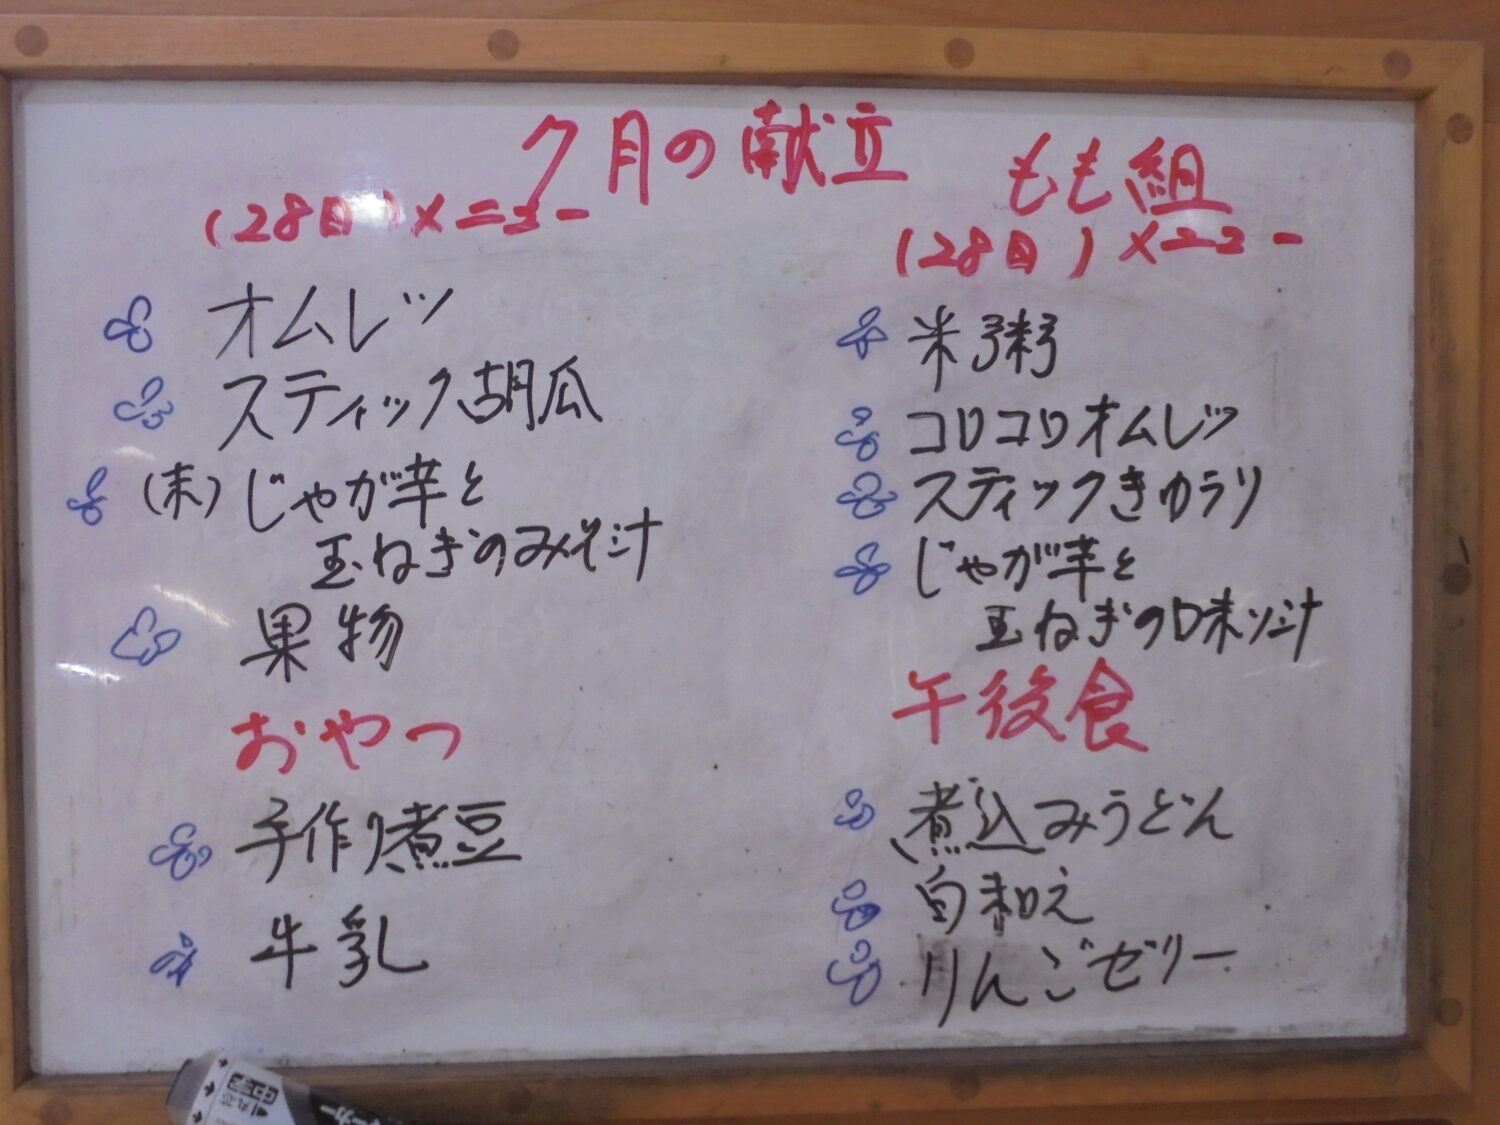 7月の献立
(28日)メニュー
オムレツ
スティック胡瓜
(未)じゃが芋と
玉ねぎのみそ汁
果物
おやつ
手作り煮豆
牛乳
もも組
(28日)メニュー
米粥
コロコロオムレツ
スティックきゅうり
じゃが芋と
玉ねぎの味ソ汁
午後食
煮込みうどん
白和え
りんごゼリー